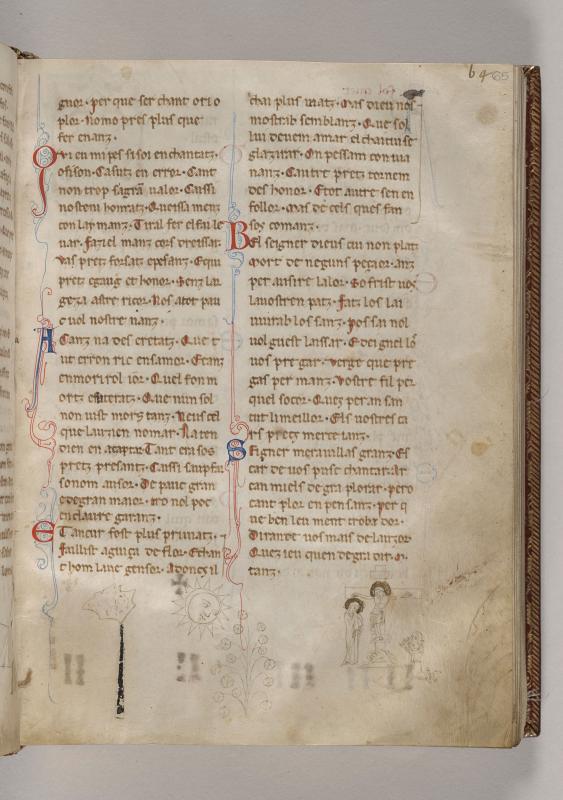 64 65
gnor · per que ser chant o ri o
plor · No mo pres plus que
fer en anz ·
Qui en mi pes si soi enchantatz ·
o fison · Ca sutz en error · Cant
non trop sagrā ualor · Caissi
nostem honratz · Queissa menz
con lay manz · Tiral fer el fai le
uar · Faziel manz cors dreissar
vas pretz forsatz epesanz · Equi
pretz egaug et honor · Senz lar
geza astre ricor · Nos ator pau
c uol nostre nanz ·
A Canz na des cretatz · Que t
ut erron ric en lamor · E canz
Quel fon m
ortz · Que num sol
non iust mors tanz · Neus cel
que lauzien nomar · La ten
dien en Tant era sos
pretz presantz · Caissi
sonom ausor · De paue gran
e de gran maior · Mo nol poc
enclaure garanz ·
E Tancur fost plus priuatz ·
Fallist aguiça de flor · E chan
t hom lane gensor · Adones il
chai plus uiatz · Mas dieu nos
mostrib semblanz · Que sol
lui deuem amar el chaitiu se
gla zirar · On pessam con ua
nanz · Cautre pretz tornem
des honor · E tot autre sen en
follor · Mas de cels ques fan
soy comanz ·
Bel seigner dieus cui non plat
Mort de neguns peçaor · anz
per ausire la lor · So frist uos
la uostren patz · Fatz los lai
uiurab los sanz · Pos sai nol
uol guest laissar · E deignel lo
uos pre gar · verge que pre
gas per manz · Vostre fil per
quel socor · Quez per an san
tut li meillor · Els uostres ca
rs pretz merce ianz ·
Seigner merauillas granz · Es
car de uos puse chantar · ar
can miels degra plorar · pero
cant plor en pensanz · per q
ue ben leu ment troba dor ·
Durante uos mais de lauzor
Quez ieu quen degrai dir · M ·
tanz ·